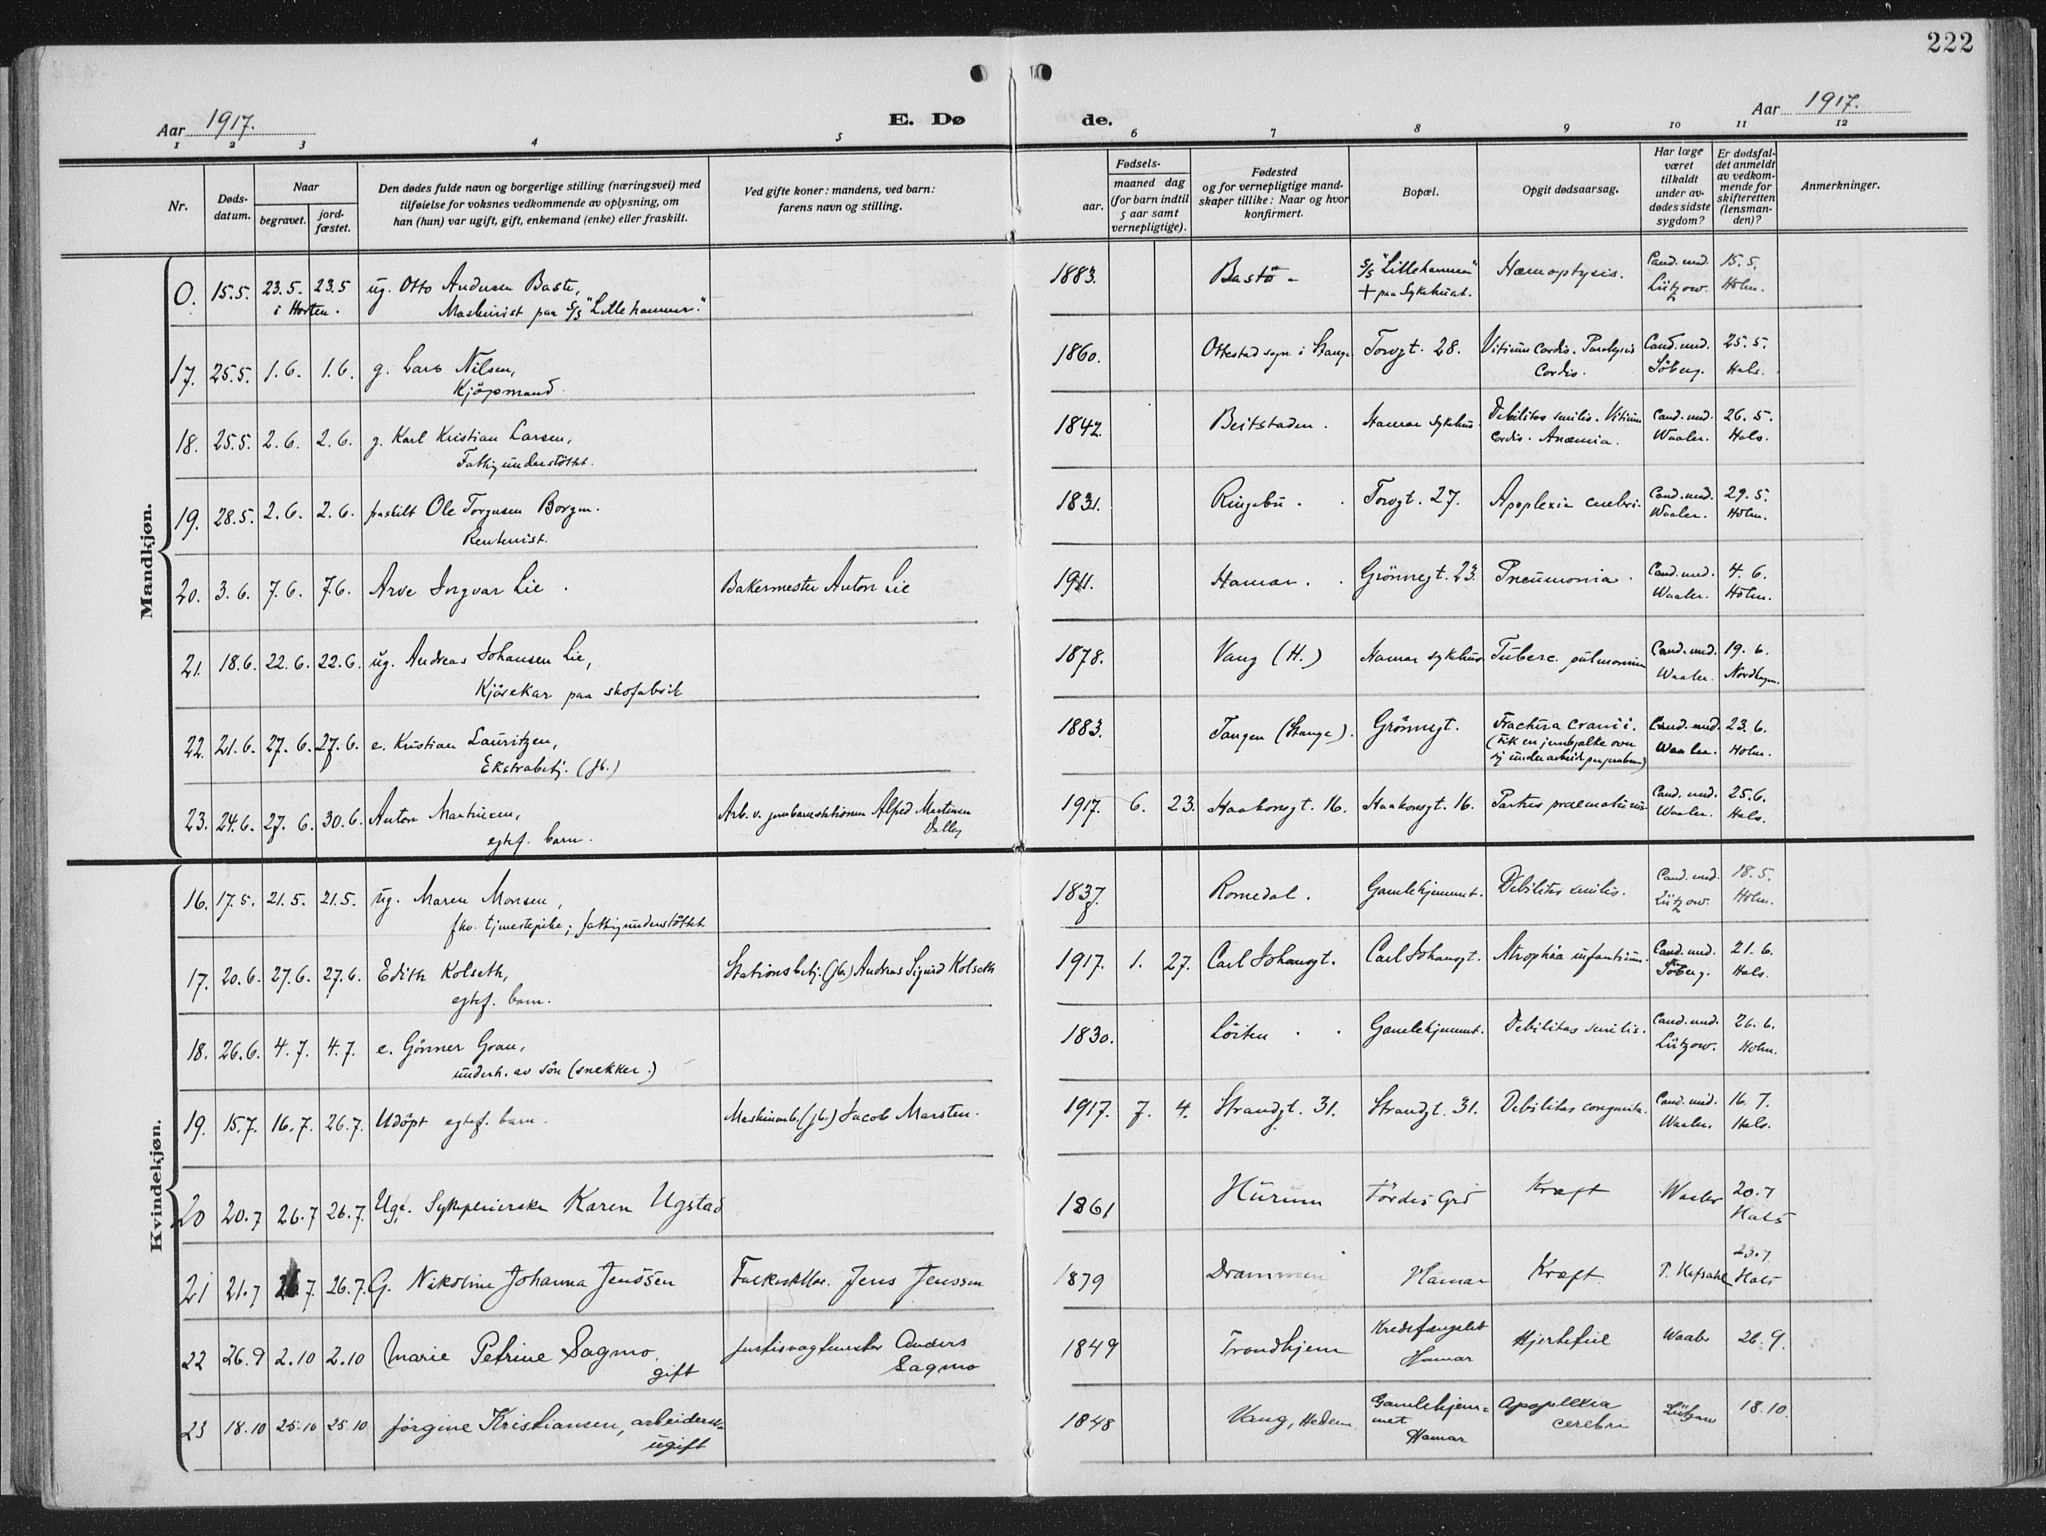 222
Aar 1917.
E. Dø de.
Aar 1917.
1 2 3 4 5 6 7 8 9 10 11 12
Nr.
Døds-
datum.
Naar
begravet.
jord-
fæstet.
Den dødes fulde navn og borgerlige stilling (næringsvei) med
tilføielse for voksnes vedkommende av oplysning, om
han (hun) var ugift, gift, enkemand (enke) eller fraskilt.
Ved gifte koner: mandens, ved barn:
farens navn og stilling.
Fødsels-
aar.
maaned dag
(for barn indtil
5 aar samt
vernepligtige).
Fødested
og for vernepligtige mand-
skaper tillike: Naar og hvor
konfirmert.
Bopæl.
Opgit dødsaarsag.
Har læge
været
tilkaldt
under av-
dødes sidste
sygdom?
Er dødsfal-
det anmeldt
av vedkom-
mende for
skifteretten
(lensman-
den)?
Anmerkninger.
Mandkjøn.
0. 15.5. 23.5. 23.5 ug. Otto Andersen Bastø, 1883. Bastø - S/S "Lillehammer" Hæmoptysis. Cand. med. 15.5.
i Horten. Maskinist paa S/S "Lillehammer". + paa Sykehuset. Lützow. Holm.
17. 25.5. 1.6. 1.6. g. Lars Nilsen, 1860. Ottestad sogn i Stange Torvgt. 28. Vitium cordis. Paralysis Cand. med. 25.5.
Kjøpmand. Cordis. Söberg. Hals.
18. 25.5. 2.6. 2.6. g. Karl Kristian Larsen, 1842. Beitstaden. Hamar sykehus. Debilitas senilis. Vitium Cand. med. 26.5.
Fattigunderstöttet. cordis. Anæmia. Waaler. Hals.
19. 28.5. 2.6. 2.6. fraskilt Ole Torgersen Borgen. 1831. Ringebu. Torvgt. 27. Apoplexia cerebri. Cand. med. 29.5.
Rentenist. Waaler. Holm.
20. 3.6. 7.6. 7.6. Arve Ingvar Lie. Bakermester Anton Lie 1911. Hamar. Grönnegt. 23. Pneumonia. Cand. med. 4.6.
Waaler. Holm.
21. 18.6. 22.6. 22.6. ug. Andreas Johansen Lie, 1878. Vang (H.) Hamar sykehus Tuberc. pulmonum Cand. med. 19.6.
Kjörekar paa skofabrik Waaler. Nordhagen.
22. 21.6. 27.6. 27.6. e. Kristian Lauritzen, 1883. Tangen (Stange). Grönnegt. Fractura cranii. Cand. med. 23.6.
Ekstrabetj. (jb.) (fik en jernbjelke over Waaler. Holm.
sig under arbeid paa jernbanen)
23. 24.6. 27.6. 30.6. Anton Martinsen, Arb. v. jernbanestationen Alfred Martinsen 1917. 6. 23. Haakonsgt. 16. Haakonsgt. 16. Partus præmaturus Cand. med. 25.6.
egtef. barn. Dalby Waaler. Hals.
Kvindekjøn.
16. 17.5. 21.5. 21.5. ug. Maren Monsen, 1837. Romedal. Gamlehjemmet. Debilitas senilis. Cand. med. 18.5.
fhv. tjenestepike; fattigunderstöttet Lützow. Holm.
17. 20.6. 27.6. 27.6. Edith Kolseth, Stationsbetj. (jb.) Andreas Sigurd Kolseth 1917. 1. 27. Carl Johansgt. Carl Johansgt. Atrophia infantium. Cand. med. 21.6.
egtef. barn. Söberg. Hals.
18. 26.6. 4.7. 4.7. e. Gönner Goan, 1830. Löiten Gamlehjemmet. Debilitas senilis. Cand. med. 26.6.
underh. av sön (snekker.) Lützow. Holm.
19. 15.7. 16.7. 26.7. Udöpt egtef. barn. Maskinarb. (jb.) Jacob Marsten. 1917. 7. 4. Strandgt. 31. Strandgt. 31. Debilitas congenita. Cand. med. 16.7.
Waaler. Hals.
20 20.7 26.7 26.7. Ug. Sykepleierske Karen Ugstad 1861 Hurum Kræft Waaler 20.7
Hals
21 21.7 26.7. 26.7. G. Nikoline Johanna Jenssen Jens Jenssen 1879 Drammen Hamar Kræft. 23.7
Hals
22 26.9 2.10 2.10 Marie Petrine Sagmo. Anders 1849 Trondhjem Kredsfængslet Hjertefeil Waaler 26.9.
gift Sagmo Hamar
23 18.10 25.10 25.10 Jørgine Kristiansen, arbeidersk. 1848 Vang, Hedem. Gamlehjem- Apoplexia Lützow 18.10.
ugift met cerebri
Hamar